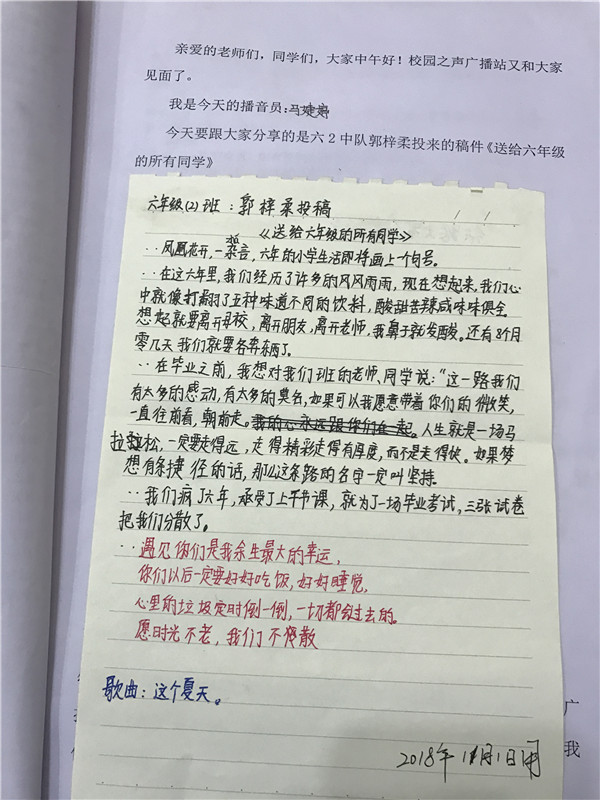 亲爱的老师们，同学们，大家中午好！校园之声广播站又和大家
见面了。
我是今天的播音员：马婕
今天要跟大家分享的是六2中队郭梓柔投来的稿件《送给六年级
的所有同学》
六年级(2)班：郭梓柔投稿
《送给六年级的所有同学》
凤凰花开，一袭言，六年的小学生活即将画上个句号。
在这六年里，我们经历了许多的风风雨雨，现在想起来，我们心
中就像打翻了五种味道不同的饮料，酸甜苦辣咸味味俱全
想起就要离开母校，离开朋友，离开老师，我鼻子就发酸。还有8个月
零几天我们就要各奔东西了。
在毕业之前，我想对我们班的老师、同学说："这一路我们
有太多的感动，有太多的莫名，如果可以我愿意带着你们的微笑，
一直往前看，朝前走。我的心永远跟你们在一起。人生就是一场马
拉松，一定要走得远，走得精彩走得有厚度，而不是走得快。如果梦
想有条捷径的话，那么这条路的名字一定叫坚持。
我们疯了六年，承受了上千节课，就为了一场毕业考试，三张试卷
把我们分散了。
遇见你们是我余生最大的幸运，
你们以后一定要好好吃饭，好好睡觉，
心里的垃圾定时倒一倒，一切都会过去的。
愿时光不老，我们不散
歌曲：这个夏天。
2018年11月1日用
广
我